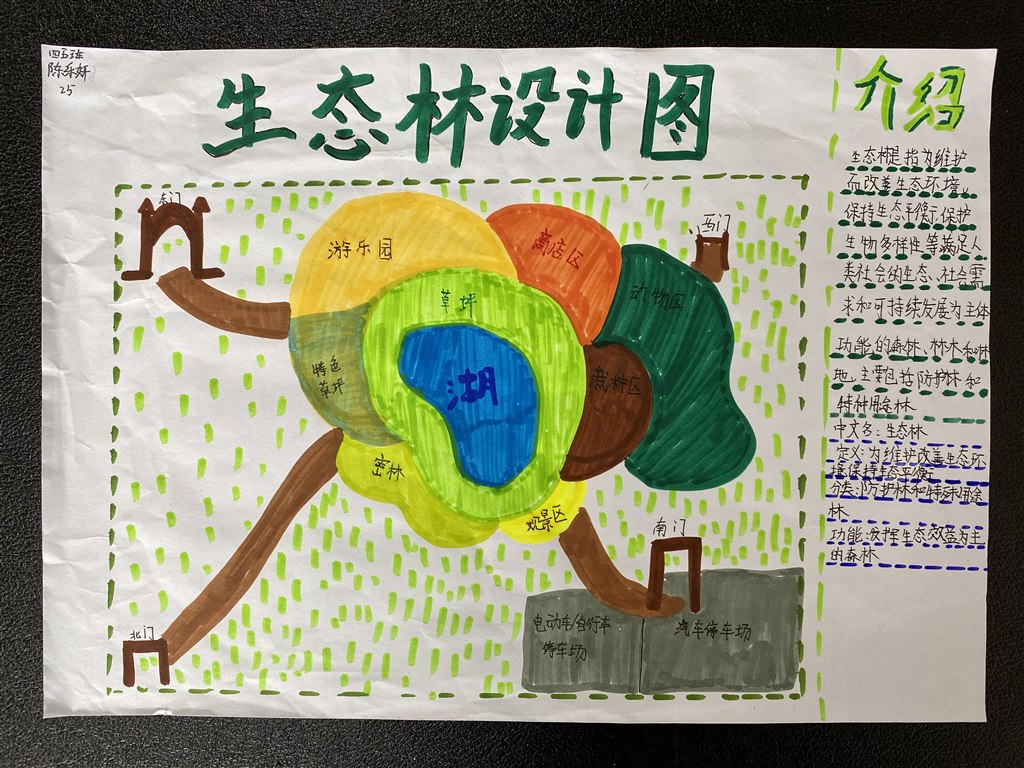 陈乐妍
25
生态林设计图
东门
西门
游乐园
商店区
动物区
草坪
湖
特色
草坪
栽种区
密林
观景区
南门
北门
电动车/自行车
停车场
汽车停车场
介绍
生态林是指为维护
和改善生态环境,
保持生态平衡,保护
生物多样性等满足人
类社会的生态、社会需
求和可持续发展为主体
功能的森林、林木和林
地,主要包括防护林和
特种用途林
中文名:生态林
定义:为维护改善生态环
境保持生态平衡
分类:防护林和特殊用途
林
功能:发挥生态效益为主
的森林